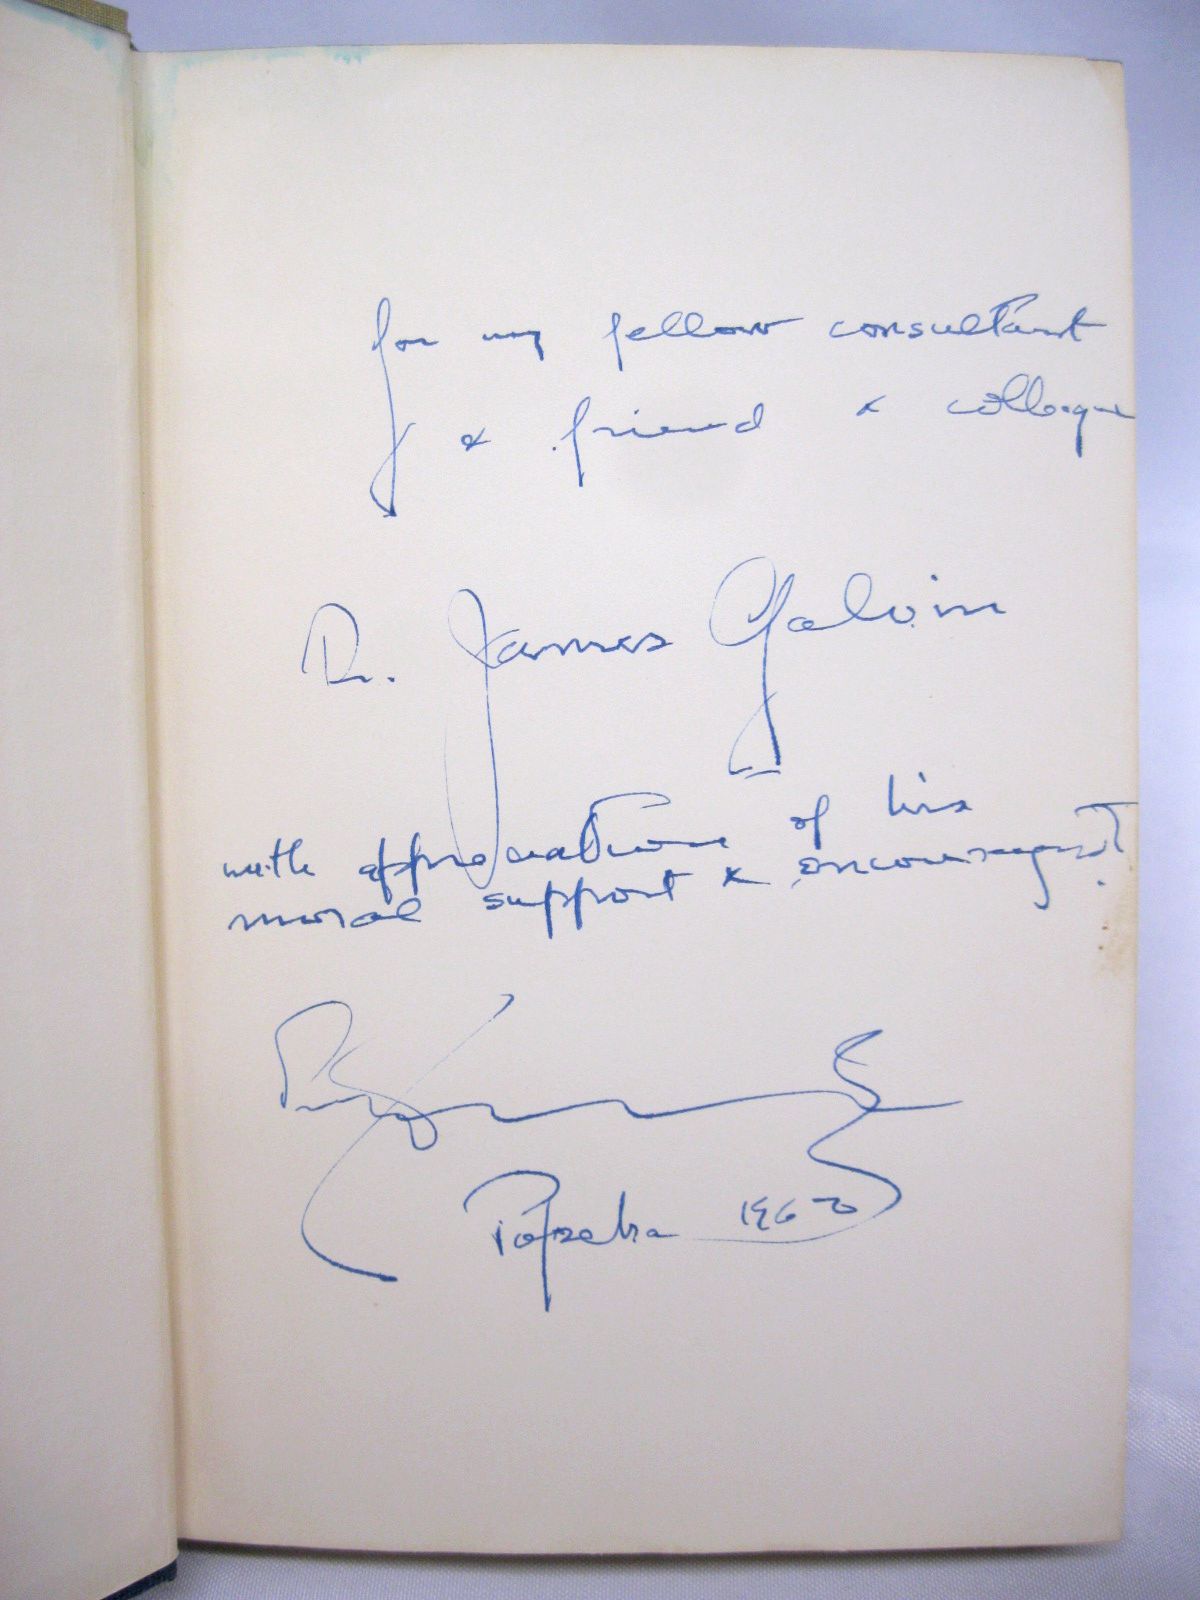 for my fellow consultant
& friend & colleague
Dr. James Galvin
with appreciation of his
moral support & encouragement.
Topeka 1962